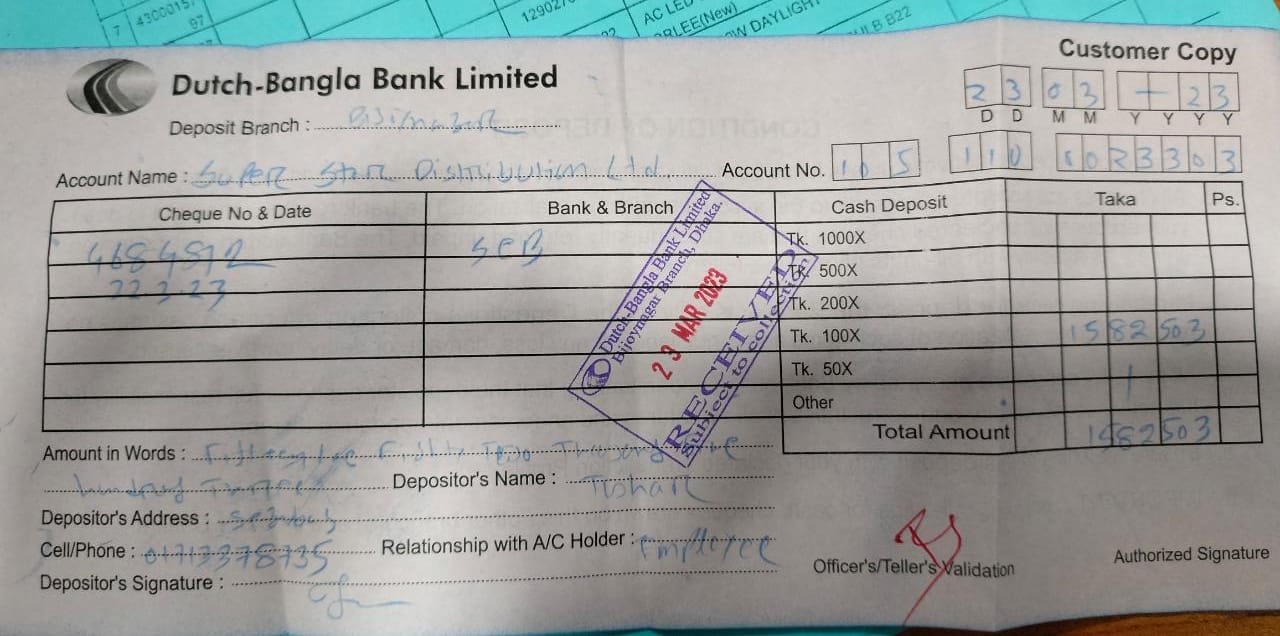 43000157
7
97
129027
AC LED
ARLEE(New)
OW DAYLIGHT
BULB B22
Customer Copy
Dutch-Bangla Bank Limited
23 03 23
D D M M Y Y Y Y
Deposit Branch :
Account Name : Super Star Distribution Ltd. Account No. 105 110 1023303
Cheque No & Date Bank & Branch Cash Deposit Taka Ps.
4684812 SCB Tk. 1000X
22.3.23 Tk. 500X
Tk. 200X
Tk. 100X 1582503
Tk. 50X
Other
Total Amount 1582503
Dutch-Bangla Bank Limited
Bijoynagar Branch, Dhaka.
23 MAR 2023
RECEIVED
Subject to collection
Amount in Words : Eighty Two Thousand Five
Depositor's Name : Tushar
Depositor's Address :
Cell/Phone : 01713378735 Relationship with A/C Holder : Employee
Depositor's Signature :
Officer's/Teller's Validation
Authorized Signature